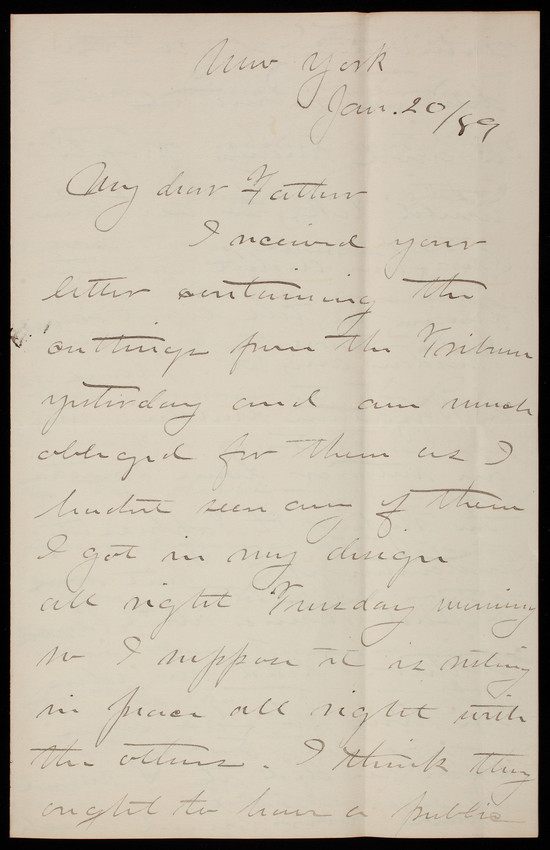 New York
Jan. 20/89
My dear Father
I received your
letter containing the
cuttings from the Tribune
yesterday and am much
obliged for them as I
hadnt seen any of them
I got in my design
all right Tuesday morning
so I suppose it is resting
in peace all right with
the others. I think they
ought to have a public